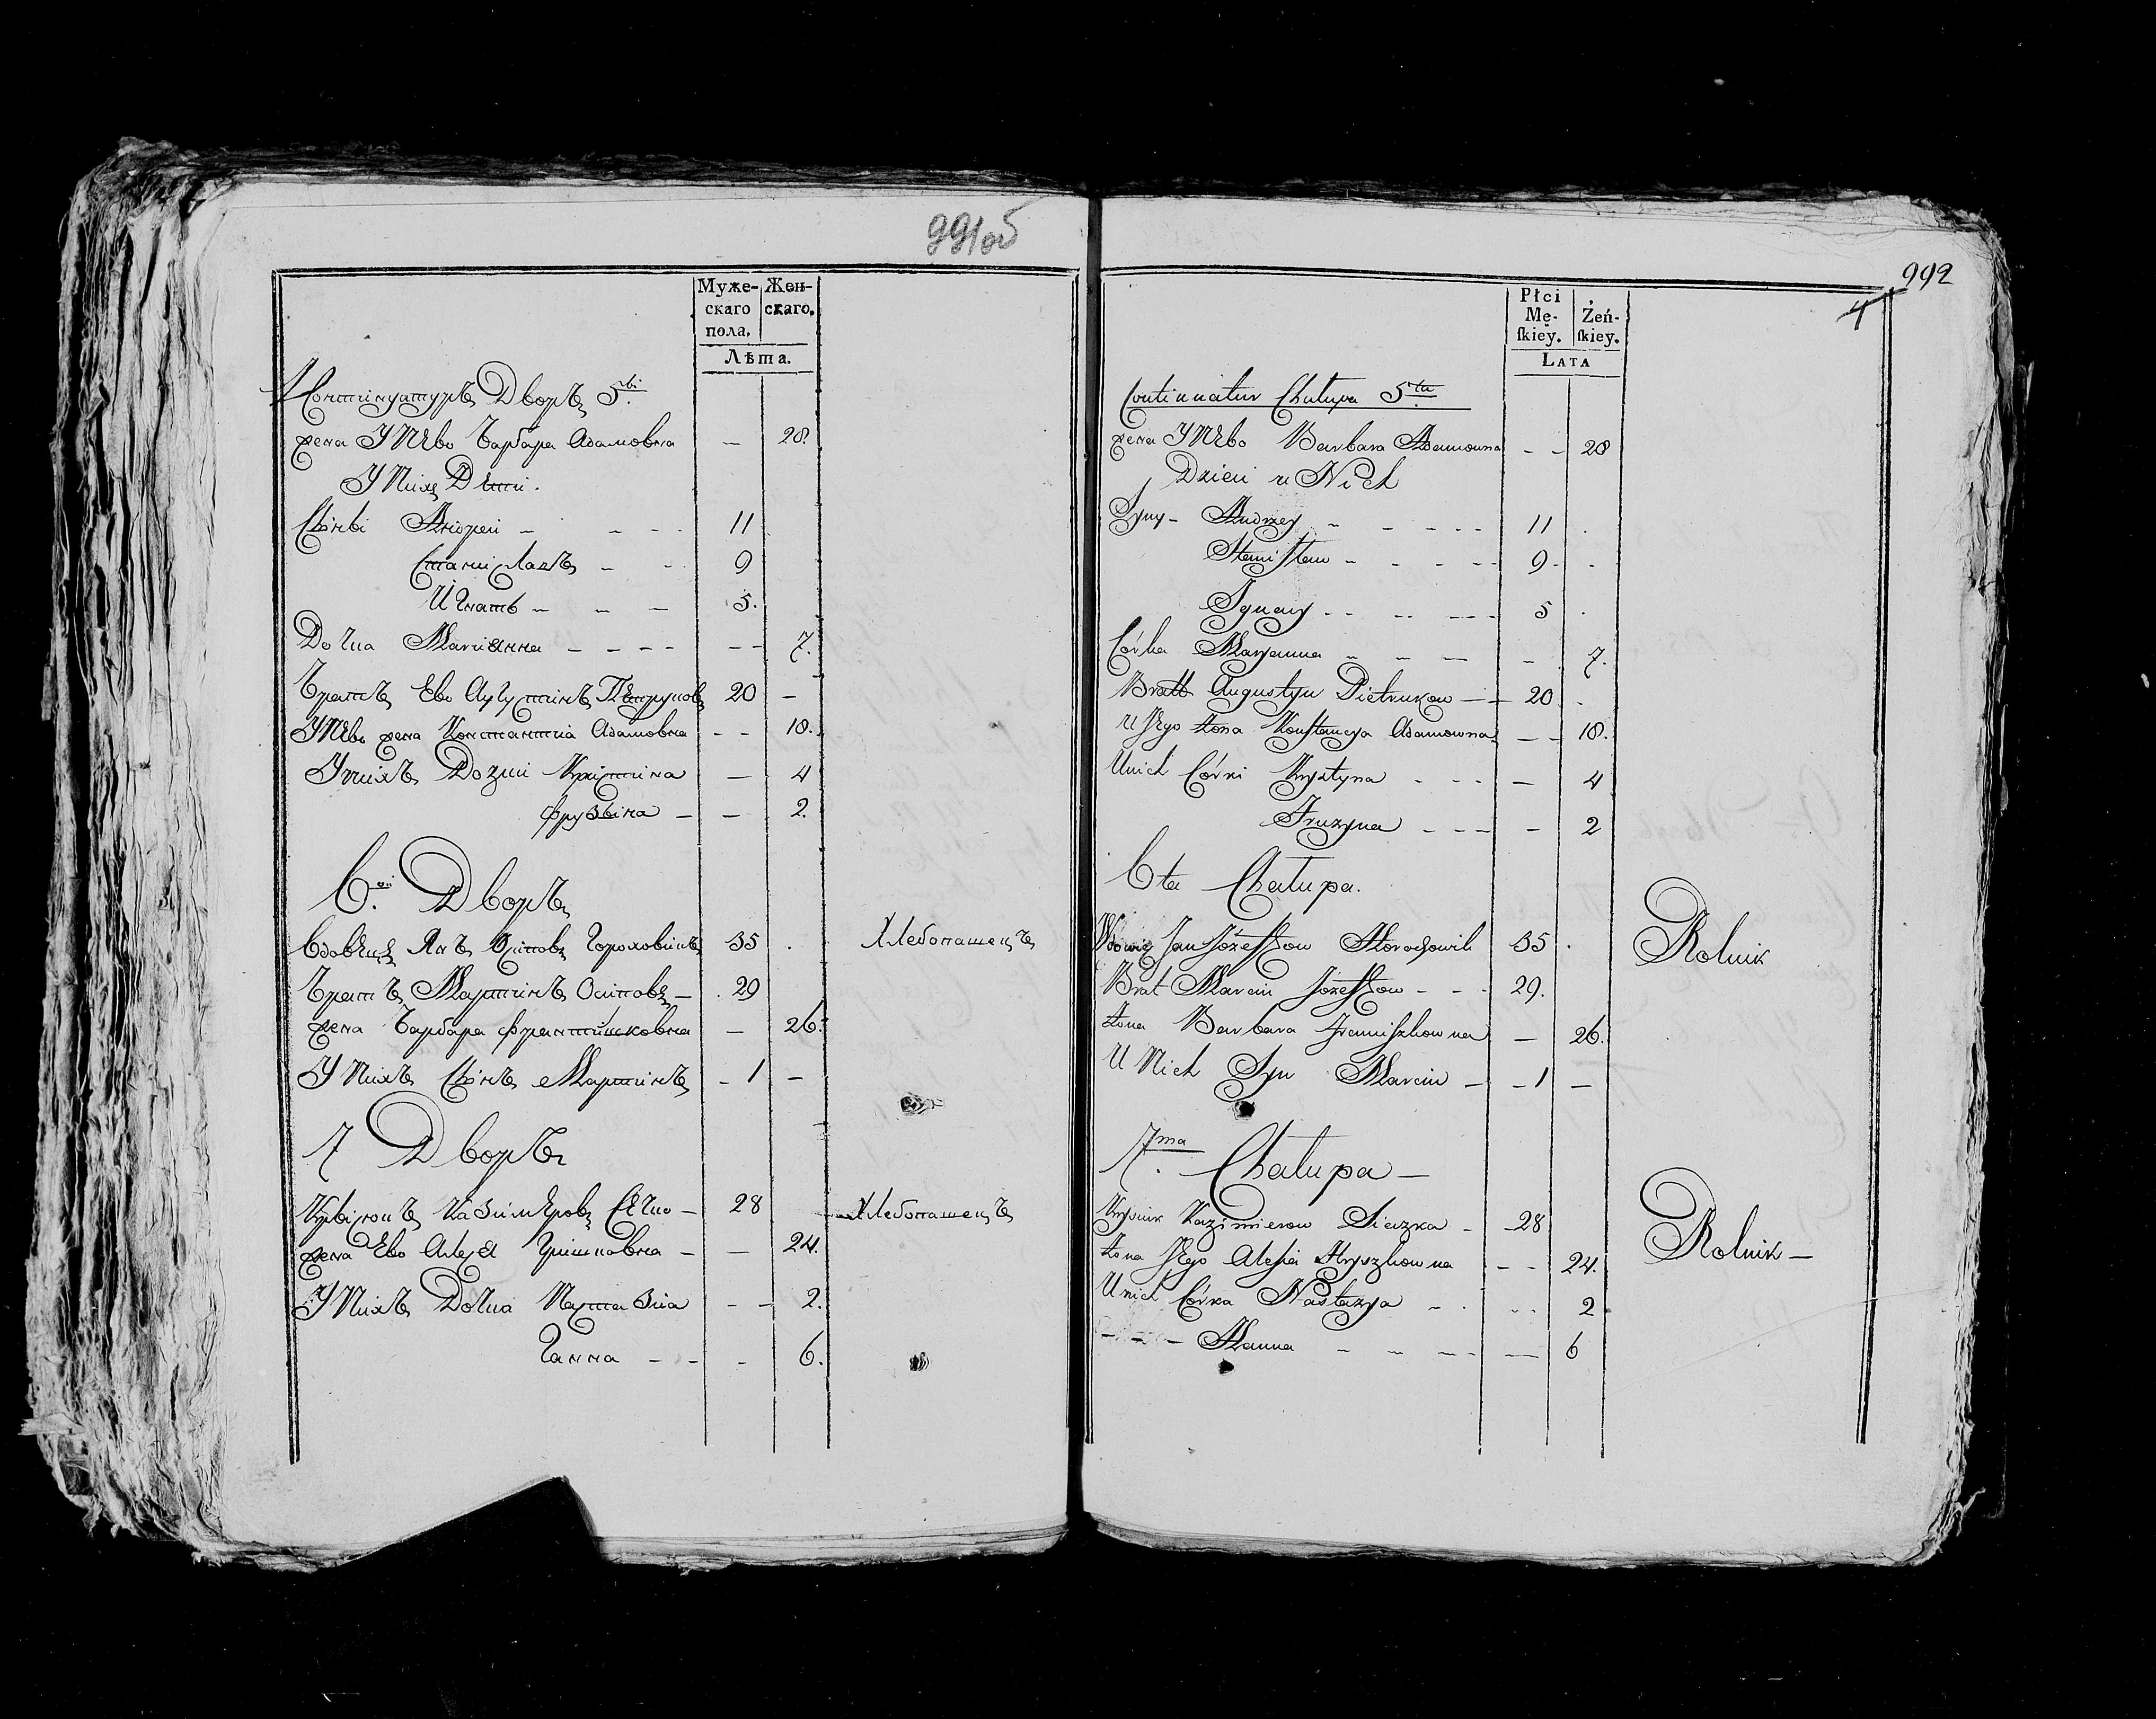 991об
Муже-
скаго
пола.
Жен-
скаго.
Лѣта.
Континуатуръ Дворъ 5ы
жена У Нево Барбара Адамовна — 28.
У Них Дети.
Сыны Андрей — 11
Станиславъ — 9
Игнатъ — 5.
Дочка Марианна — 7.
Братъ Ево Аугустинъ Петруковъ 20 —
У Нево жена Константиа Адамовна — 18.
У нихъ Дочки Кристина — 4
Фрузына — 2.
6ои Дворъ
Вдовецъ Янъ Осиповъ Гороховикъ 35 . Хлебопашецъ
Братъ Мартинъ Осиповъ — 29
жена Барбара Францишковна — 26.
У Нихъ Сынъ Мартинъ — 1 —
7 Дворъ
Казимеровъ Сечко — 28 Хлебопашецъ
жена Ево Алеся Гришковна — 24.
У Нихъ Дочка Настазиа — 2.
Ганна — 6.
992
4
Płci
Mę-
skiey.
Żeń-
skiey.
LATA
Continuatur Chałupa 5ta
жена У Нево Barbara Adamowna — 28
Dzieci u Nich
Syny - Andrzey — 11 .
Stanisław — 9 .
Ignacy — 5 .
Córka Maryanna — 7.
Brat Augustyn Pietrukow — 20 .
U Jego żona Konstancya Adamowna — 18.
U nich Córki Krystyna — 4
Fruzyna — 2
6ta Chałupa.
Wdowiec Jan Józefow Horochowik 35 . Rolnik
Brat Marcin Józefow — 29.
żona Barbara Franciszkowna — 26.
U Nich Syn Marcin — 1 —
7ma Chałupa —
Kazimierow Sieczka — 28 Rolnik —
żona Jego Alesia Hryszkowna — 24.
U nich Córka Nastazya — 2
Hanna — 6